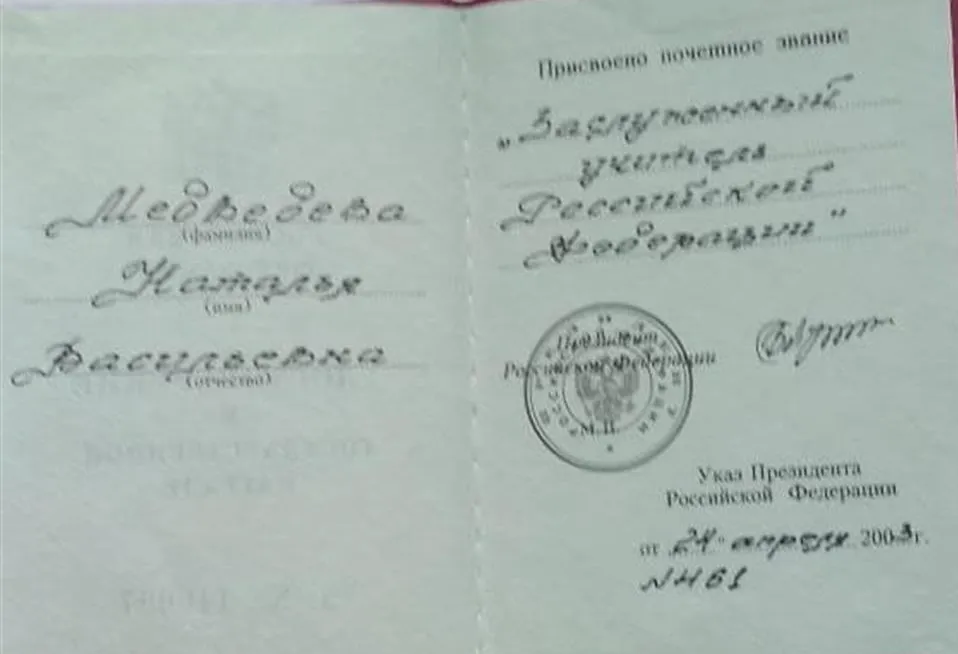 Медведева
(фамилия)
Наталья
(имя)
Васильевна
(отчество)
Присвоено почетное звание
„Заслуженный
учитель
Российской
Федерации"
Президент
Российской Федерации
М.П.
Указ Президента
Российской Федерации
от „24" апреля 2003 г.
N 461